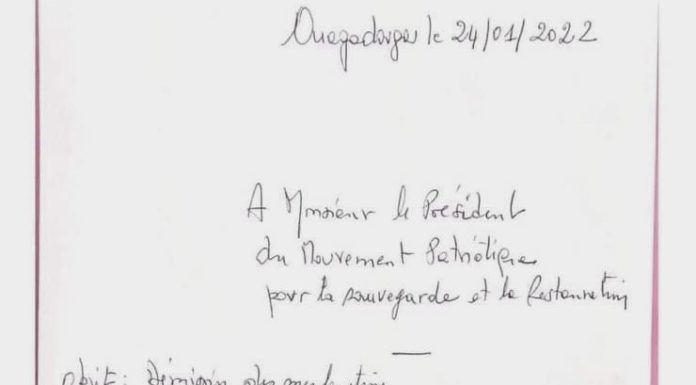 Ouagadougou le 24/01/2022
A Monsieur le Président
du Mouvement Patriotique
pour la sauvegarde et la Restauration
objet: Démission